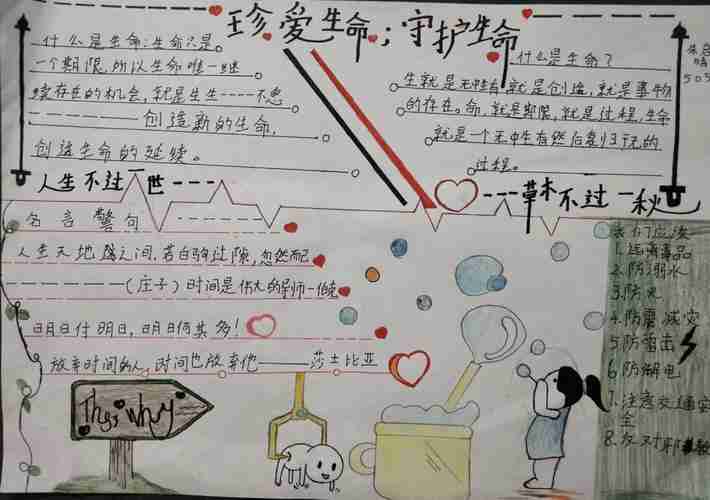 珍爱生命;守护生命
什么是生命:生命只是
一个期限,所以生命唯一继
续存在的机会,就是生生----不息
创造新的生命,
创造生命的延续。
什么是生命?
生就是无中生有,就是创造,就是事物
的存在。命,就是期限,就是过程,生命
就是一个无中生有然后到归于无的
过程。
505
人生不过一世---
---草木不过一秋
名言警句
人生天地之间,若白驹过隙,忽然而已
(庄子)时间是伟大的导师一伯克
明日付明日,明日何其多!
放弃时间的人,时间也放弃他——莎士比亚
Thes Why
我们应该
1.远离毒品
2.防溺水
3.防火
4.防震减灾
5防雷击
6防触电
7.注意交通安
全
8.反对邪教